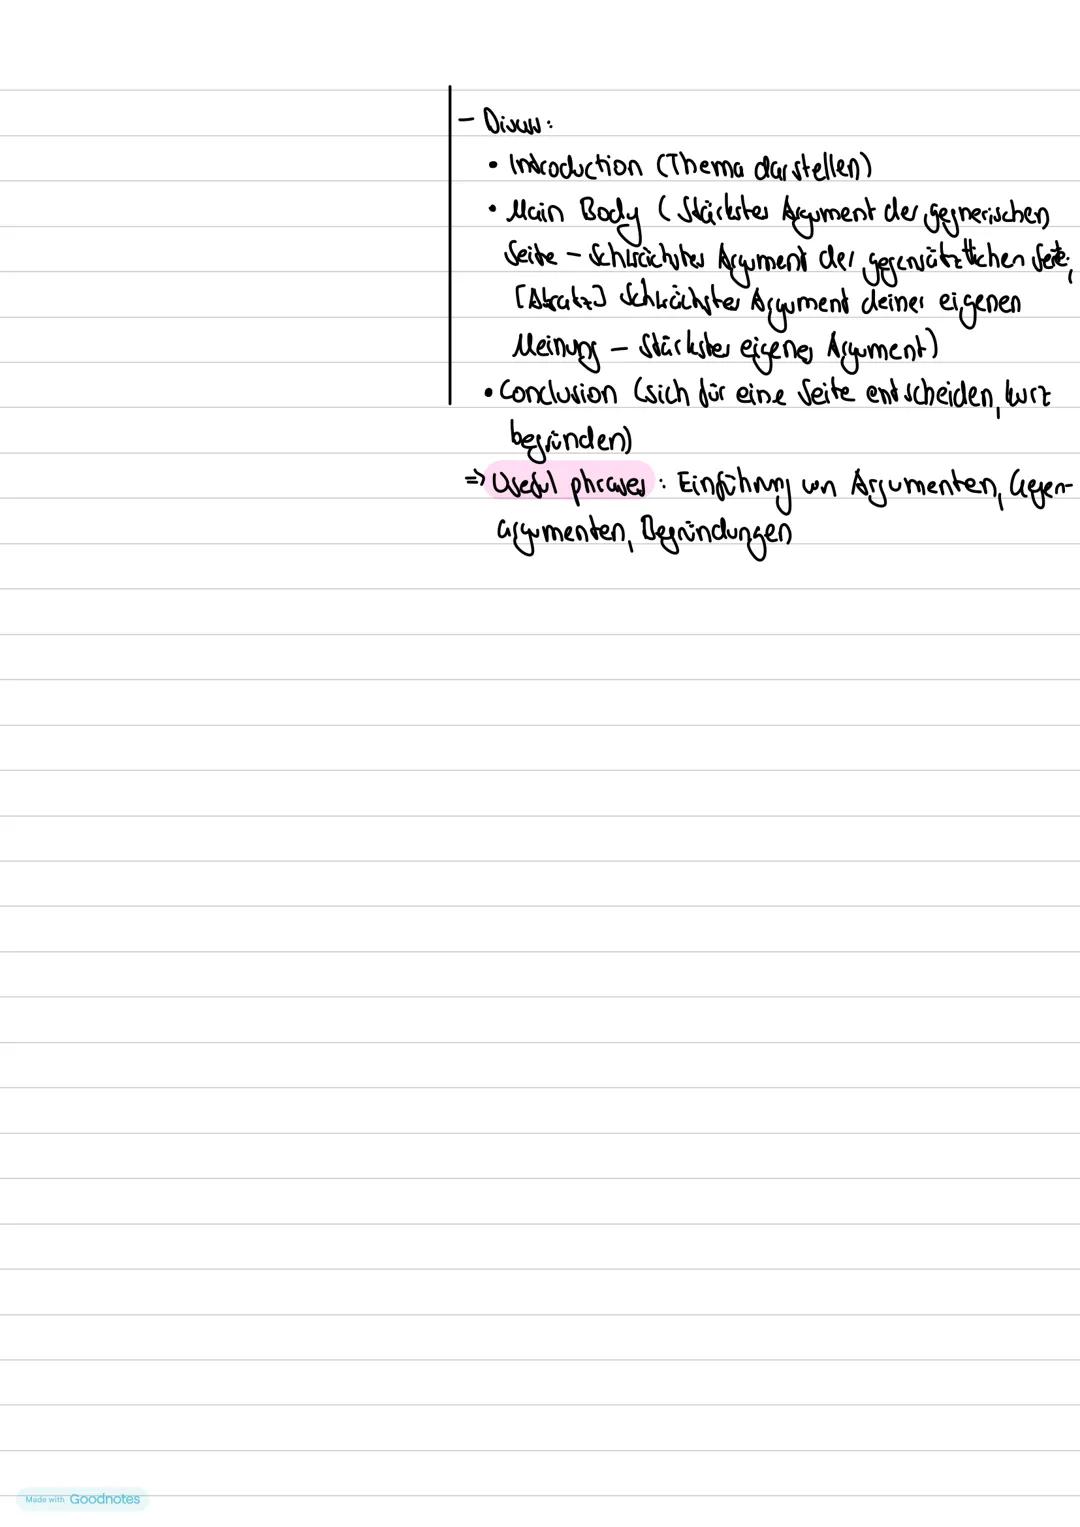 - Discuss:
• Introduction (Thema darstellen)
• Main Body (Stärkstes Argument der gegnerischen
Seite - Schwächstes Argument der gegensätztlichen Seite;
[Absatz] Schwächstes Argument deiner eigenen
Meinung - Stärkstes eigenes Argument)
• Conclusion (sich für eine Seite entscheiden, kurz
begründen)
=> Useful phrases: Einführung von Argumenten, Gegen-
argumenten, Begründungen
Made with Goodnotes